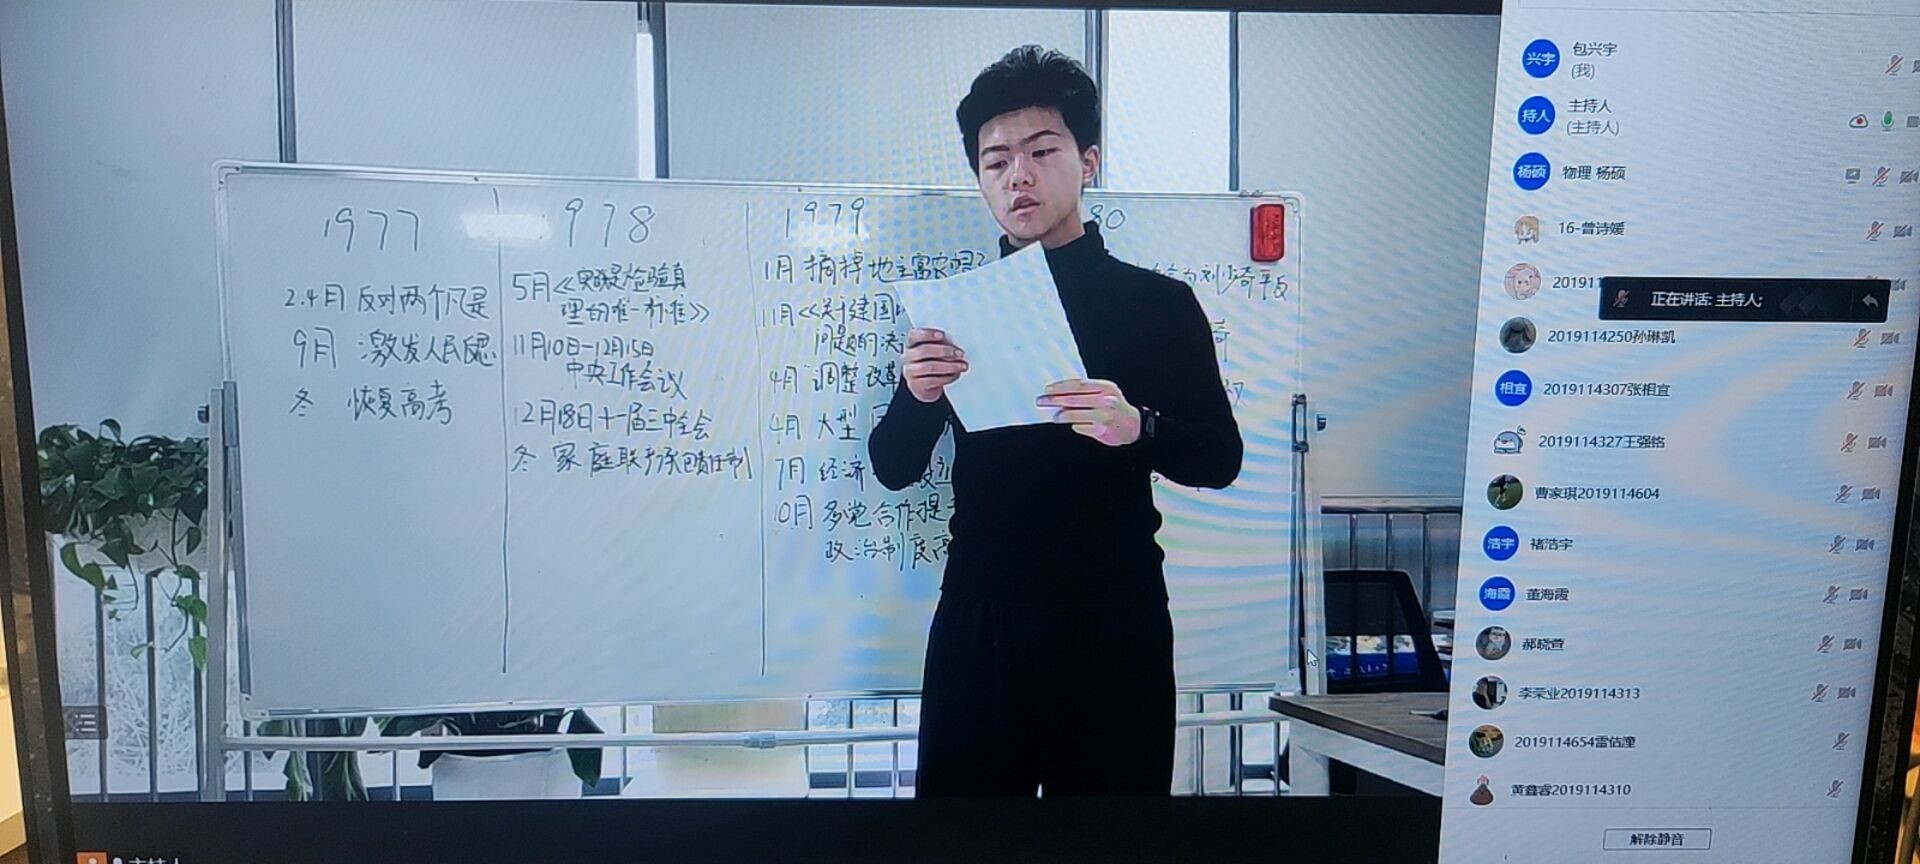 1977
2.4月 反对两个凡是
9月 激发人民反思
冬 恢复高考
1978
5月《实践是检验真
理的唯一标准》
11月10日-12月15日
中央工作会议
12月18日十一届三中全会
冬 家庭联产承包责任制
1979
1月 摘掉地主富农
11月《关于建国
问题的决
4月 调整改革
4月 大型
7月 经济
10月 多党合作提
政治制度高
80
为刘少奇平反
兴宇
包兴宇
(我)
持人
主持人
(主持人)
杨硕
物理 杨硕
16-曾诗媛
201911
正在讲话: 主持人;
2019114250孙琳凯
相宜
2019114307张相宜
2019114327王强铭
曹家琪2019114604
浩宇
褚浩宇
海霞
董海霞
郝晓萱
李荣业2019114313
2019114654雷佶潼
黄鑫睿2019114310
解除静音
主持人